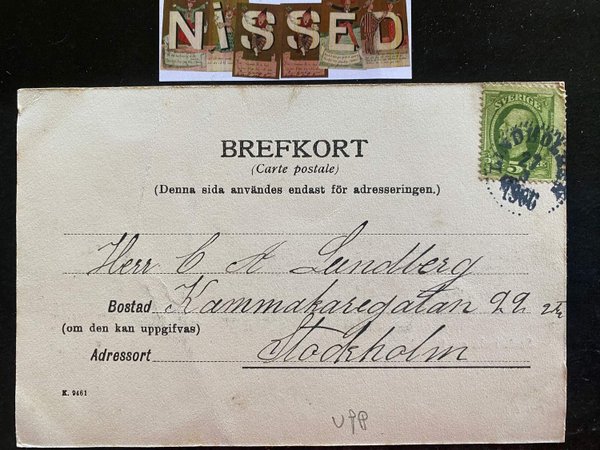 NiSSED
BREFKORT
(Carte postale)
(Denna sida användes endast för adresseringen.)
SVERIGE
5
27
1906
Herr C A Lundberg
Bostad Kammakaregatan 22
(om den kan uppgifvas)
Adressort Stockholm
K. 9461
UPP